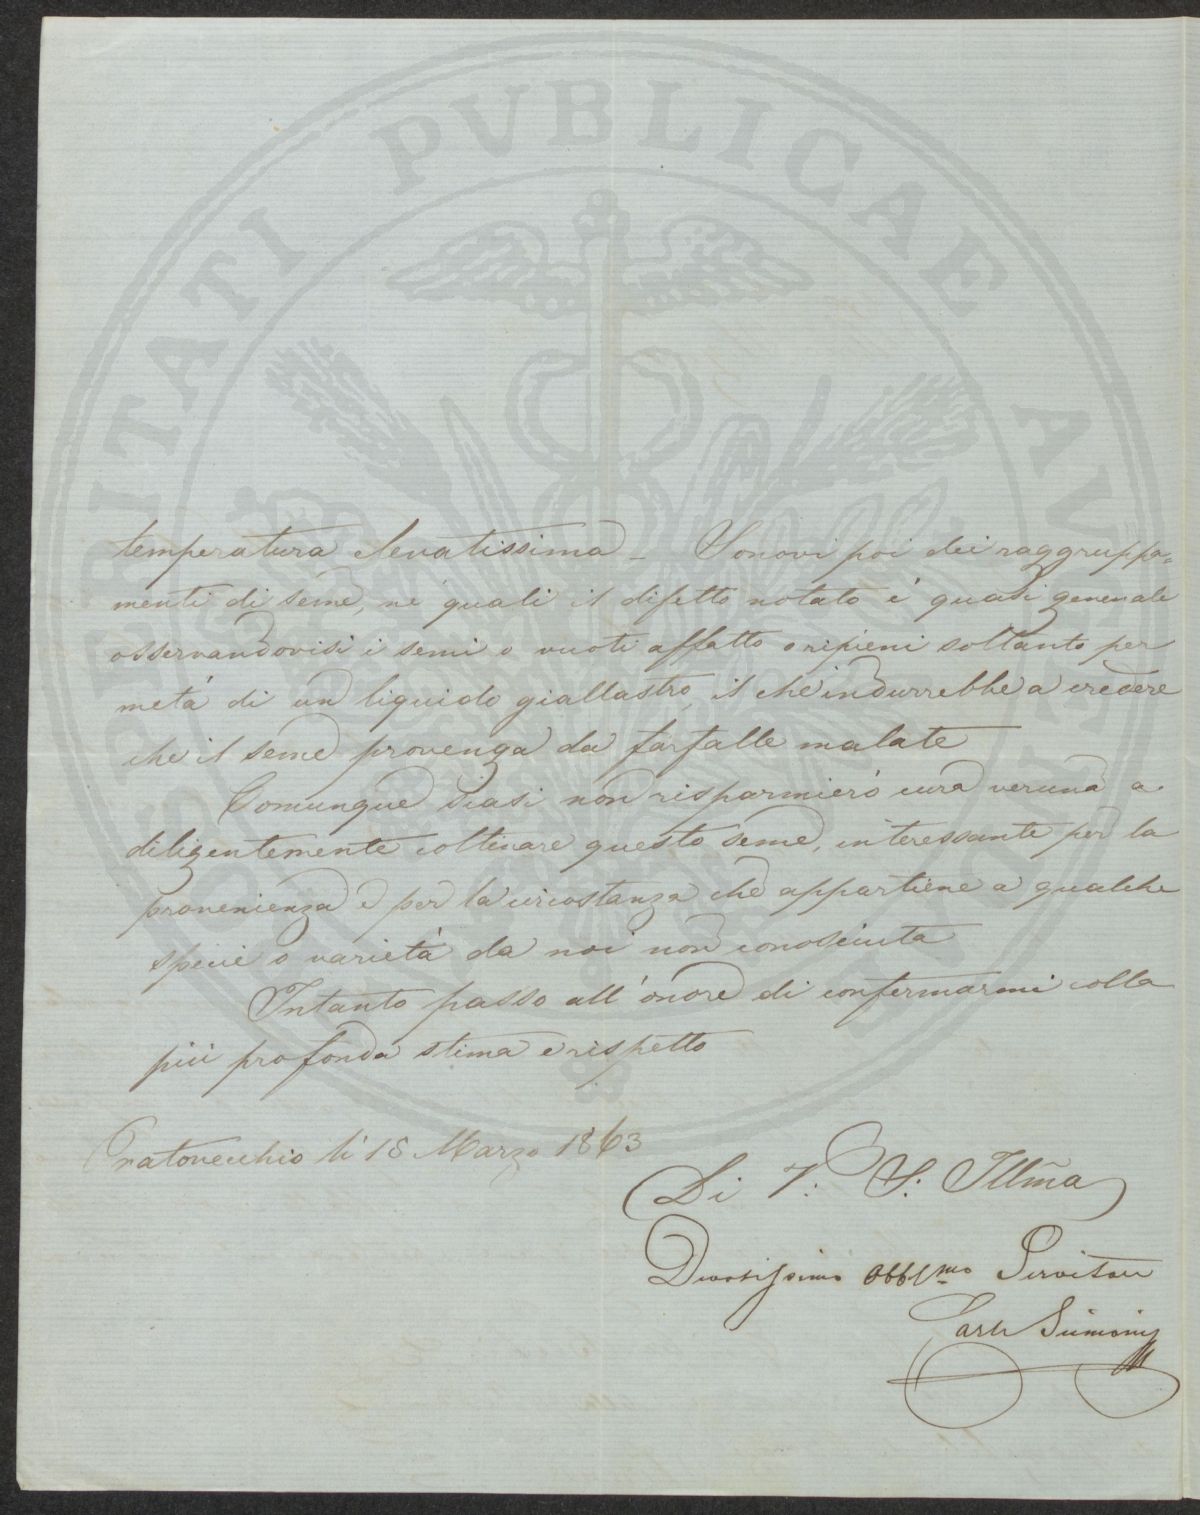 PROSPERITATI PVBLICAE AVGENDAE
temperatura elevatissima - Sonovi poi dei raggruppa=
menti di seme, ne' quali il difetto notato è quasi generale
osservandovisi i semi o vuoti affatto o ripieni soltanto per
metà di un liquido giallastro, il che indurrebbe a credere
che il seme provenga da farfalle malate
Comunque siasi non risparmierò cura veruna a
diligentemente coltivare questo seme, interessante per la
provenienza e per la circostanza che appartiene a qualche
specie o varietà da noi non conosciuta
Intanto passo all'onore di confermarmi colla
più profonda stima e rispetto
Pratovecchio li 18 Marzo 1863
Di V: S: Illma
Devotissimo Obblmo Servitore
Carlo Siemoni